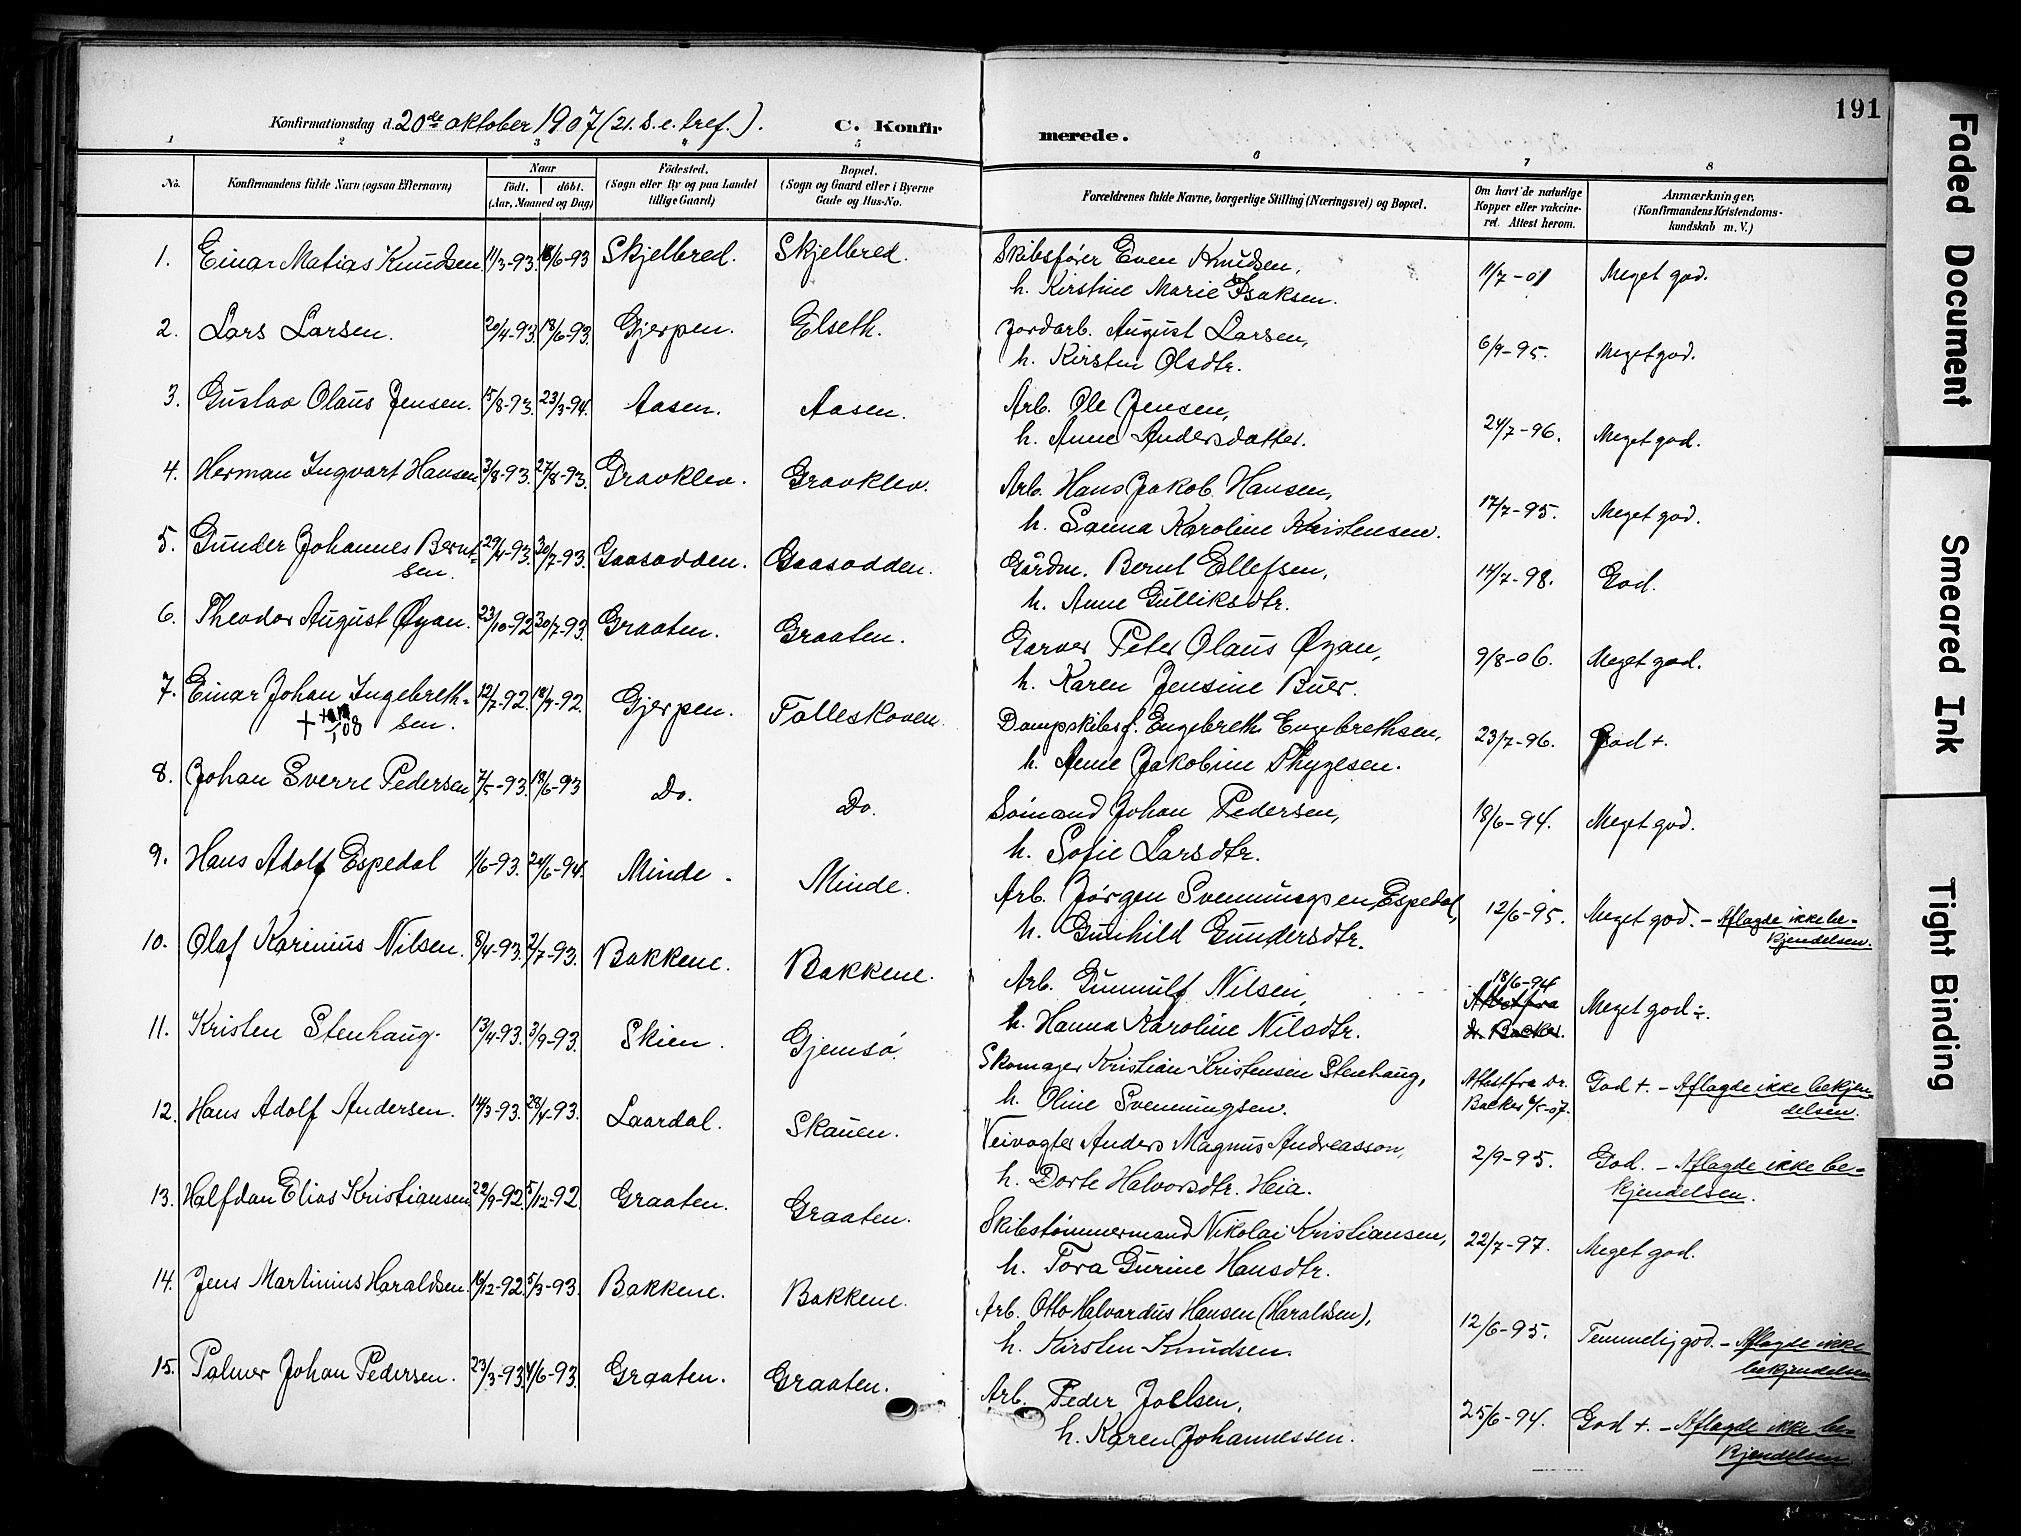 191
Konfirmationsdag d. 20de oktober 1907 (21. s. e. tref.).
C. Konfirmerede.
1 2 3 4 5 6 7 8
No. | Konfirmandens fulde Navn (ogsaa Efternavn) | Naar født. | døbt. (Aar, Maaned og Dag) | Fødested. (Sogn eller By og paa Landet tillige Gaard) | Bopæl. (Sogn og Gaard eller i Byerne Gade og Hus-No.) | Forældrenes fulde Navne, borgerlige Stilling (Næringsvei) og Bopæl. | Om havt de naturlige Kopper eller vakcineret. Attest herom. | Anmærkninger. (Konfirmandens Kristendomskundskab m. V.)
1. Einar Matias Knudsen 11/3-93. 18/6-93 Skjelbred. Skjelbred. Skibsfører Even Knudsen, 11/7-01 Meget god.
h. Kirstine Marie Isaksen.
2. Lars Larsen. 20/4-93. 18/6-93. Gjerpen. Elseth. Jordarb. August Larsen, 6/9-95. Meget god.
h. Kirsten Olsdtr.
3. Gustav Olaus Jensen. 15/8-93. 23/3-94. Aasen. Aasen. Arb. Ole Jensen, 24/7-96. Meget god.
h. Anne Andersdatter.
4. Herman Ingvart Hansen 3/8-93. 27/8-93. Gravklev. Gravklev. Arb. Hans Jakob Hansen, 17/7-95. Meget god.
h. Sanna Karoline Kristensen.
5. Gunder Johannes Bernt- 29/4-93. 30/7-93. Gaasodden. Gaasodden. Gårdm. Bernt Ellefsen, 14/7-98. God.
sen. h. Anne Gulliksdtr.
6. Theodor August Øyan. 23/10-92 30/7-93. Graaten. Graaten. Garver Peter Olaus Øyan, 9/8-06. Meget god.
h. Karen Jensine Buer.
7. Einar Johan Ingebreth- 12/7-92. 18/9-92. Gjerpen. Falleskoven. Dampskibsf. Engebreth Engebrethsen, 23/7-96. God +.
sen. h. Anne Jakobine Thygesen.
8. Johan Sverre Pedersen 7/5-93. 18/6-93 Do. Do. Sømand Johan Pedersen, 18/6-94. Meget god.
h. Sofie Larsdtr.
9. Hans Adolf Espedal 1/6-93. 24/6-94. Minde. Minde. Arb. Jørgen Svenningsen Espedal, 12/6-95. Meget god. - Aflagde ikke be-
h. Gunhild Gundersdtr. kjendelsen.
10. Olaf Karinius Nilsen. 8/4-93. 2/7-93. Bakkene. Bakkene. Arb. Gunnulf Nilsen, 18/6-94 Meget god ÷.
h. Hanna Karoline Nilsdtr. Attest fra dr. Backer.
11. Kristen Stenhaug. 13/4-93. 3/9-93. Skien. Gjemsø. Skomager Kristian Kristensen Stenhaug, Attest fra dr. God +. - Aflagde ikke bekjen-
h. Oline Svenningsen. Backer 6/5-07. delsen.
12. Hans Adolf Andersen. 14/3-93. 28/4-93. Laardal. Skauen. Veivogter Anders Magnus Andreasson, 2/9-95. God. - Aflagde ikke be-
h. Dorte Halvorsdtr. Heia. kjendelsen.
13. Halfdan Elias Kristiansen 22/9-92. 5/12-92. Graaten. Graaten. Skibstømmermand Nikolai Kristiansen, 22/7-97. Meget god.
h. Tora Gurine Hansdtr.
14. Jens Martinius Haraldsen. 19/12-92. 5/3-93. Bakkene. Bakkene. Arb. Otto Halvardus Hansen (Haraldsen), 12/6-95. Temmelig god. - Aflagde ikke
h. Kirsten Knudsen. bekjendelsen
15. Palmer Johan Pedersen. 23/3-93. 4/6-93. Graaten. Graaten. Arb. Peder Joelsen, 25/6-94. God +. - Aflagde ikke be-
h. Karen Johannessen. kjendelsen
Faded Document
Smeared Ink
Tight Binding